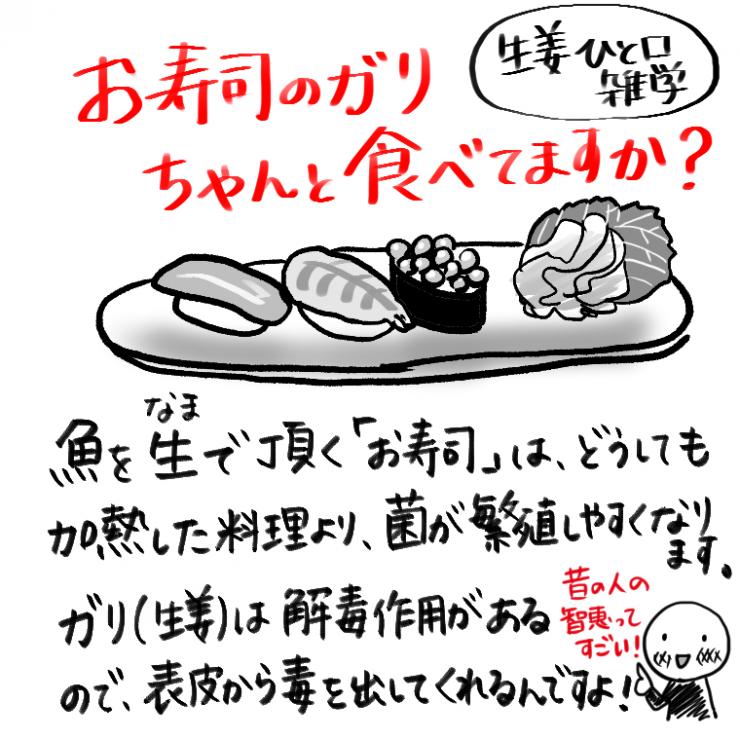 生姜ひと口
雑学
お寿司のガリ
ちゃんと食べてますか？
なま
魚を生で頂く「お寿司」は、どうしても
加熱した料理より、菌が繁殖しやすくなり
ます。
ガリ(生姜)は解毒作用がある
ので、表皮から毒を出してくれるんですよ！
昔の人の
智恵って
すごい！